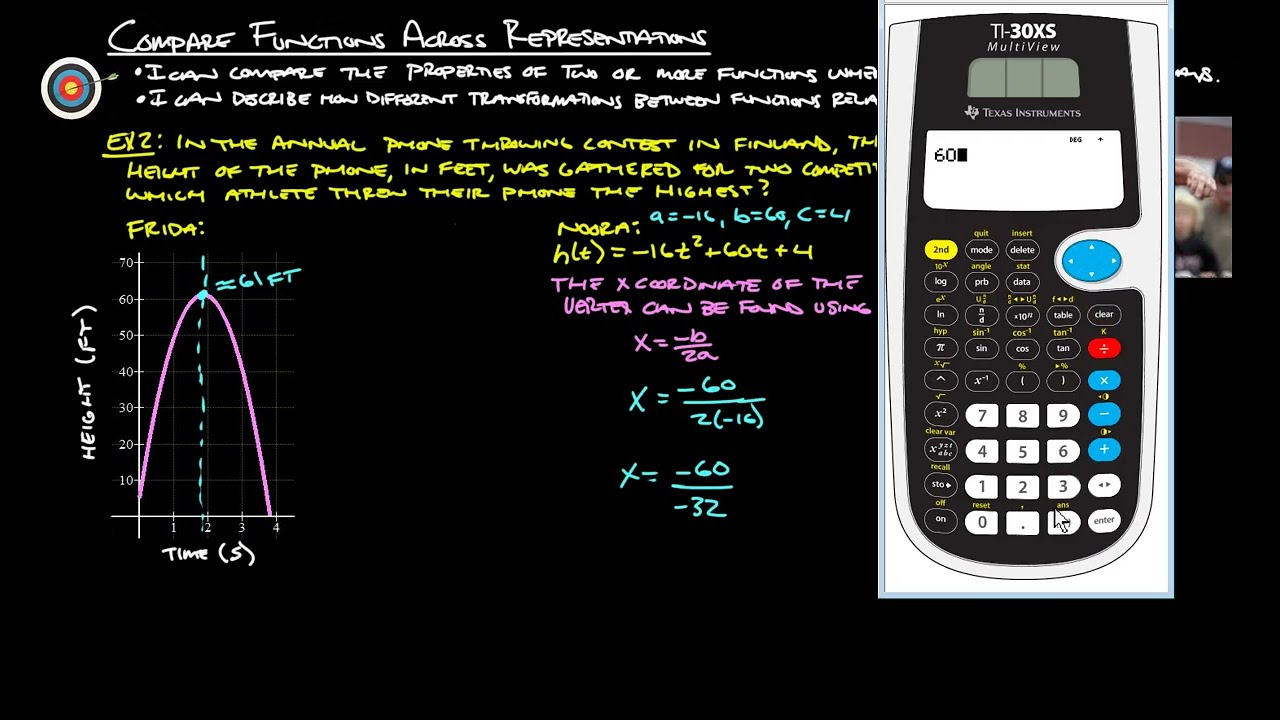 COMPARE FUNCTIONS ACROSS REPRESENTATIONS
• I CAN COMPARE THE PROPERTIES OF TWO OR MORE FUNCTIONS WHE
• I CAN DESCRIBE HOW DIFFERENT TRANSFORMATIONS BETWEEN FUNCTIONS RELA
EX2: IN THE ANNUAL PHONE THROWING CONTEST IN FINLAND, TH
HEIGHT OF THE PHONE, IN FEET, WAS GATHERED FOR TWO COMPETIT
WHICH ATHLETE THREW THEIR PHONE THE HIGHEST?
FRIDA:
≈61 FT
HEIGHT (FT)
70
60
50
40
30
20
10
1 2 3 4
TIME (S)
a=-16, b=60, c=4
NOORA:
h(t) = -16t²+60t+4
THE X COORDINATE OF THE
VERTEX CAN BE FOUND USING
X = -b/2a
X = -60/2(-16)
X = -60/-32
TI-30XS
MultiView
TEXAS INSTRUMENTS
DEG
60
quit insert
2nd mode delete
10ˣ angle stat
log prb data
eˣ f◄►d
ln n/d ×10ⁿ table clear
hyp sin⁻¹ cos⁻¹ tan⁻¹ K
π sin cos tan ÷
ˣ√ % ►%
^ x⁻¹ ( ) ×
√
x² 7 8 9 −
clear var
x yzt abc 4 5 6 +
recall
sto► 1 2 3 ◄►
off reset , ans
on 0 . enter